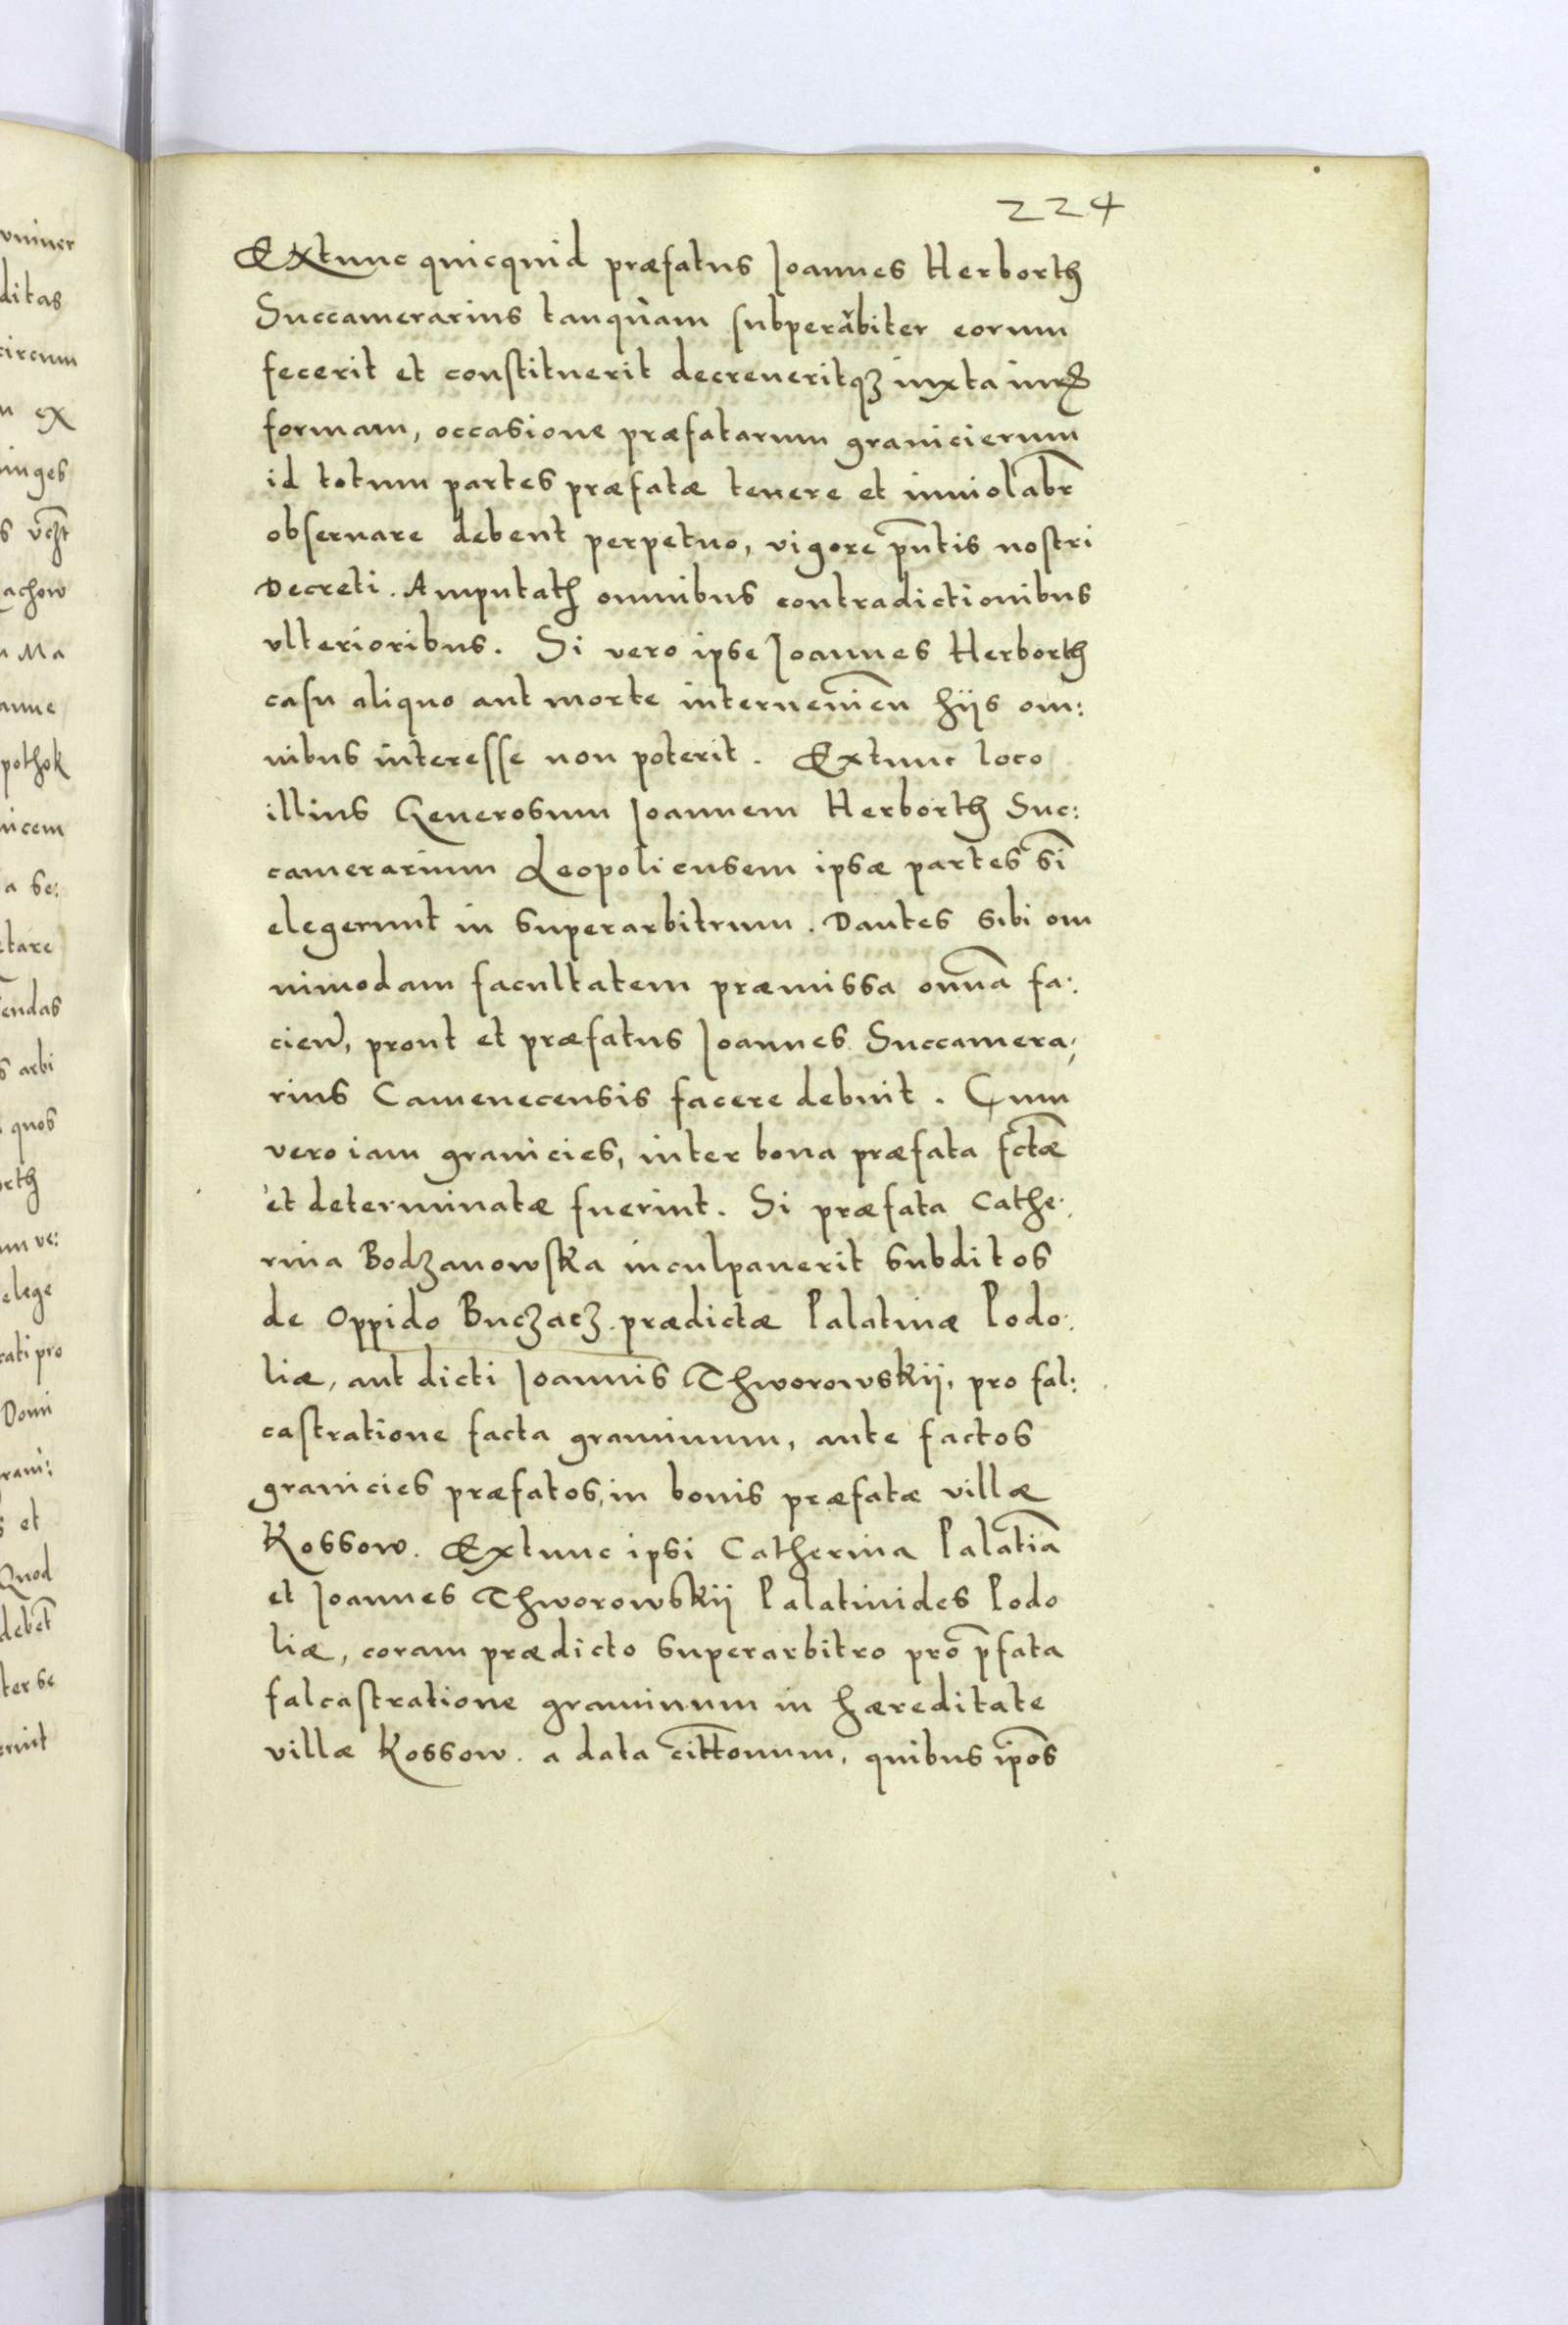 224
Extunc quicquid præfatus Joannes Herborth
Succamerarius tanquam subperarbiter eorum
fecerit et constituerit decreueritqꝫ iuxta iuris
formam, occasione præfatarum granicierum
id totum partes præfatæ tenere et inuiolabr̃
obseruare debent perpetuo, vigore pñtis nostri
Decreti. Amputatħ omnibus contradictionibus
vlterioribus. Si vero ipse Joannes Herborth
casu aliquo aut morte interueniẽn hijs om:
nibus interesse non poterit. Extunc loco
illius Generosum Joannem Herborth Suc:
camerarium Leopoliensem ipsæ partes s̃i
elegerunt in superarbitrum. Dantes sibi om
nimodam facultatem præmissa omña fa:
cien̄, prout et præfatus Joannes Succamera:
rius Camenecensis facere debuit. Cum
vero iam granicies, inter bona præfata fctæ̃
et determinatæ fuerint. Si præfata Cathe:
rina Bodzanowska inculpauerit subditos
de Oppido Buczacz prædictæ Palatinæ Podo:
liæ, aut dicti Joannis Thworowskij, pro fal:
castratione facta graminum, ante factos
granicies præfatos, in bonis præfatæ villæ
Kossow. Extunc ipsi Catherina Palatĩa
et Joannes Thworowskij Palatinides Podo
liæ, coram prædicto superarbitro pro p̃fata
falcastratione graminum in hæreditate
villæ Kossow. a data cittõnum, quibus ip̃os
vniuer
ditas
circum
ex
inges
achow
Ma
anne
pothok
nicem
a se:
tare
endas
arbi
quos
orth
um ve:
elege
cati pro
Domi
grani:
et
Quod
debet
ter se
erint